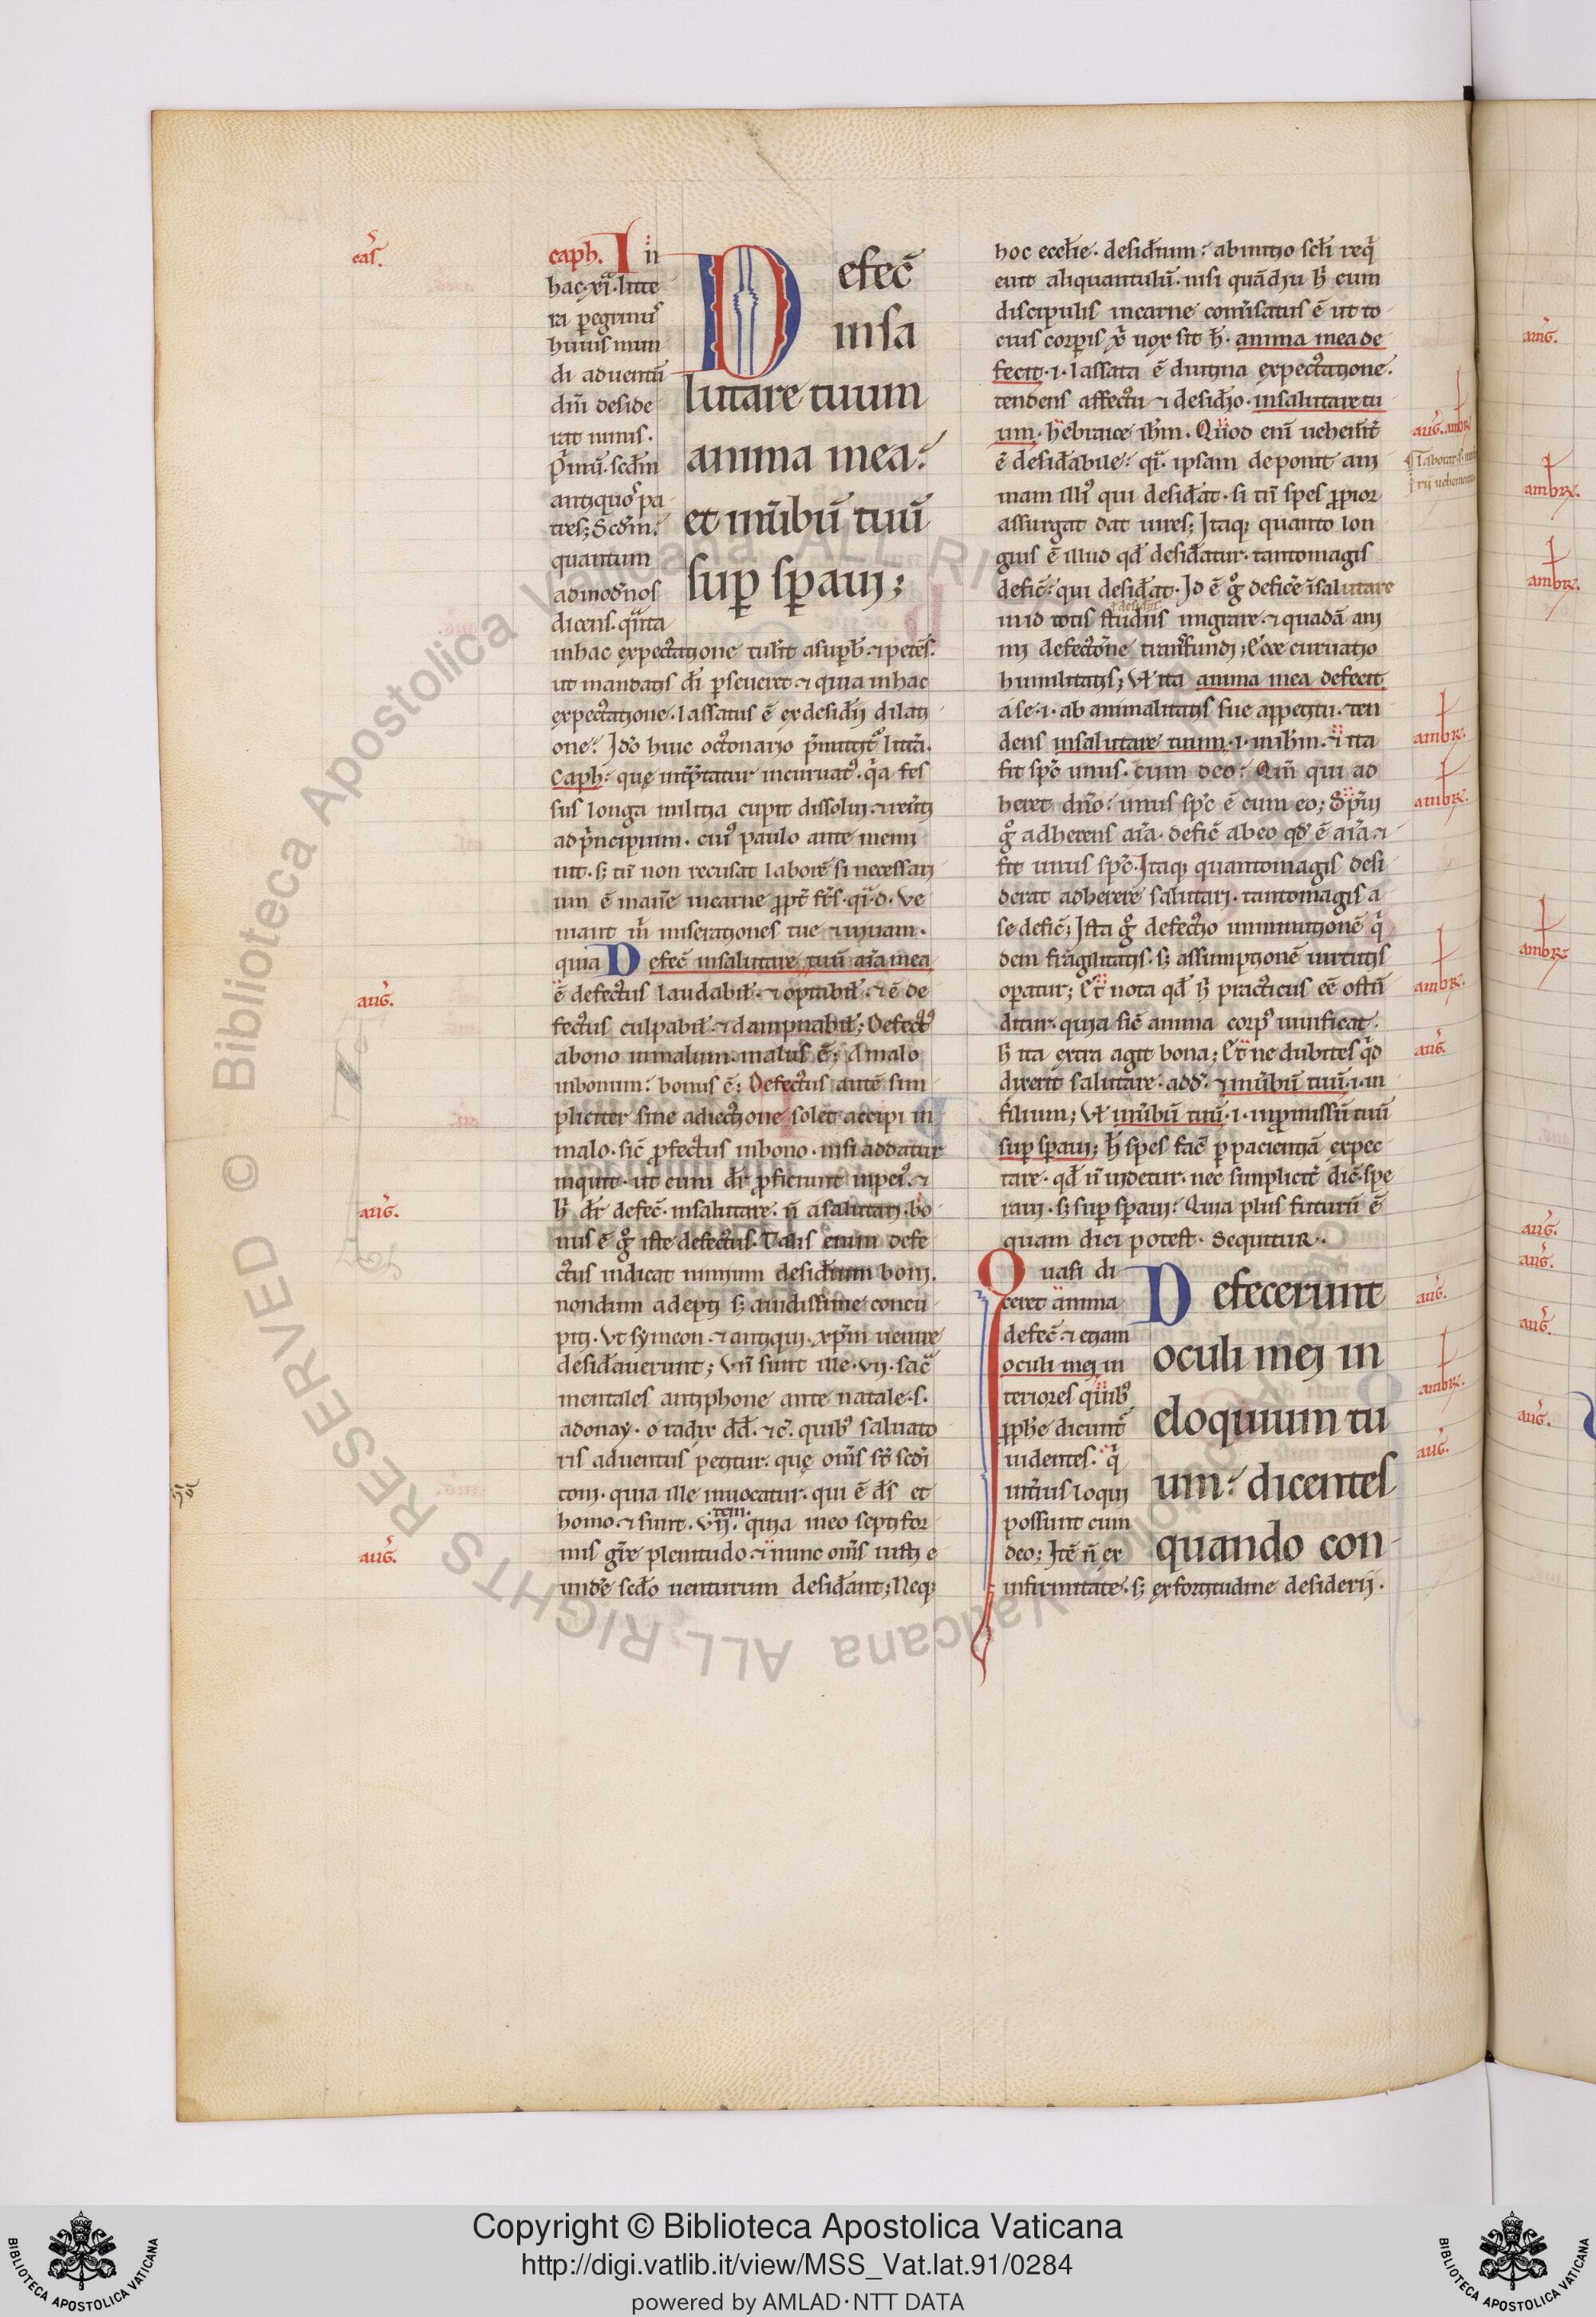 caph. In
hac xi. litte
ra peregrinus
huius mun
di aduentū
dm̄ deside
rat nimis.
antiquos pa
quantum
dicens. quita
Defec̄
in sa
lutare tuum
anima mea:
et in ūbū tuū
sup speraui;
in hac expectatione
ut mandatis di perseueret. & quia in hac
expectatione. lassatus ē ex desidii dilati
one. Ido huic octonario
Caph. quę
sus longa militia cupit dissolui
ad principium. cui9 paulo ante memi
nit. s; tn̄ non recusat laborē si necessari
um ē
miserationes tue & uiuam.
quia Defec̄ in salutare tuū aīa mea
ē defectus laudabil. & optabil. & ē de
fectus culpabil. & dampnabil; Defect9
a bono in malum. malus ē; A malo
in bonum: bonus ē; Defectus autē sim
pliciter sine adiectione solet accipi in
malo. sic̄ profectus in bono. nisi addatur
inquit. ut cum dr̄ proficiunt in pei9. &
h̄ dr̄ defec̄. in salutare. n̄ a salutari. bo
nus ē ḡ iste defectus. Talis enim defe
ctus indicat nimium desiderium boni.
nondum adepti s; auidissime concu
piti. Vt symeon. & antiqui. xp̄m uenire
desiderauerunt; Vn̄ sunt ille. vii. sac̄
mentales antiphone ante natale. s.
adonay. o radix dd̄. & c̄. quib9 saluato
ris aduentus petitur. quę
quia ille inuocatur. qui ē ds̄ et
homo. & sunt. vii.tem quia in eo septifor
mis gr̄e plenitudo. & nunc om̄s iusti e
unde scdo uenturum desiderant; Neq;
hoc eccl̄ie. desiderium: ab initio scl̄i req̄
euit aliquantulū. nisi quādiu h̄ cum
discipulis in carne conuersatus ē ut to
cius corporis
anima mea de
fecit. i. lassata ē diutina expectatione.
tendens affectu & desiderio. in salutare tu
um. hebraice ih̄m. Quod enī uehem̄t̄
ē desiderabile: ipsam deponit ani
mam illi9 qui desiderat. si tn̄ spes propior
assurgat dat uires; Itaq; quanto lon
gius ē illud qd̄ desideratur. tanto magis
defic̄: qui desiderat. Id ē ḡ defice in salutare
totis studiis migrare. & quadā ani
mi defectione transfundi; Ecce curuatio
humilitatis; Vt ita anima mea defecit
a se. i. ab animalitatis sue appetitu. ten
dens in salutare tuum. i. in ih̄m. & ita
fit spc̄ unus. cum deo: Qm̄ qui ad
heret dn̄o: unus spc̄ ē cum eo;
ḡ adherens aīa. defic̄ ab eo qd̄ ē aīa. &
fit unus spc̄. Itaq; quanto magis desi
derat adherere salutari. tanto magis a
se defic̄; Ista ḡ defectio inminutionē q̄
dem fragilitatis. s; assumptionē uirtutis
operatur; Et nota qd̄ h̄ practicus ēē ostn̄
ditur. quia sic̄ anima corp9 uiuificat.
h̄ ita extra agit bona; Et ne dubites q̄d
dixerit salutare. add̄. & in ūbū tuū. i. in
filium; Vt in ūbū tuū. i. in promissū tuū
sup speraui; h̄ spes fac̄ p pacientiā expec
tare. qd̄ n̄ uidetur. nec simplicit̄ dic̄. spe
raui. s; sup speraui: Quia plus futurū ē
quam dici potest. Sequitur.
Quasi di
ceret anima
defec̄. & etiam
oculi mei in
teriores quib9
pph̄e dicunt̄
uidentes. q̄
interius loqui
possunt cum
deo; Itē n̄ ex
infirmitate. s; ex fortitudine desiderij.
Defecerunt
oculi mei in
eloquium tu
um: dicentes
quando con
cas.
aug.
aug.
aug.
aug. ambr.
ambr.
ambr.
ambr.
aug.
aug.
ambr.
aug.
aug.
ambr.
ambr.
ambr.
aug.
aug.
aug.
aug.
© Biblioteca Apostolica Vaticana ALL RIGHTS RESERVED
BIBLIOTECA APOSTOLICA VATICANA
Copyright © Biblioteca Apostolica Vaticana
http://digi.vatlib.it/view/MSS_Vat.lat.91/0284
powered by AMLAD·NTT DATA
BIBLIOTECA APOSTOLICA VATICANA